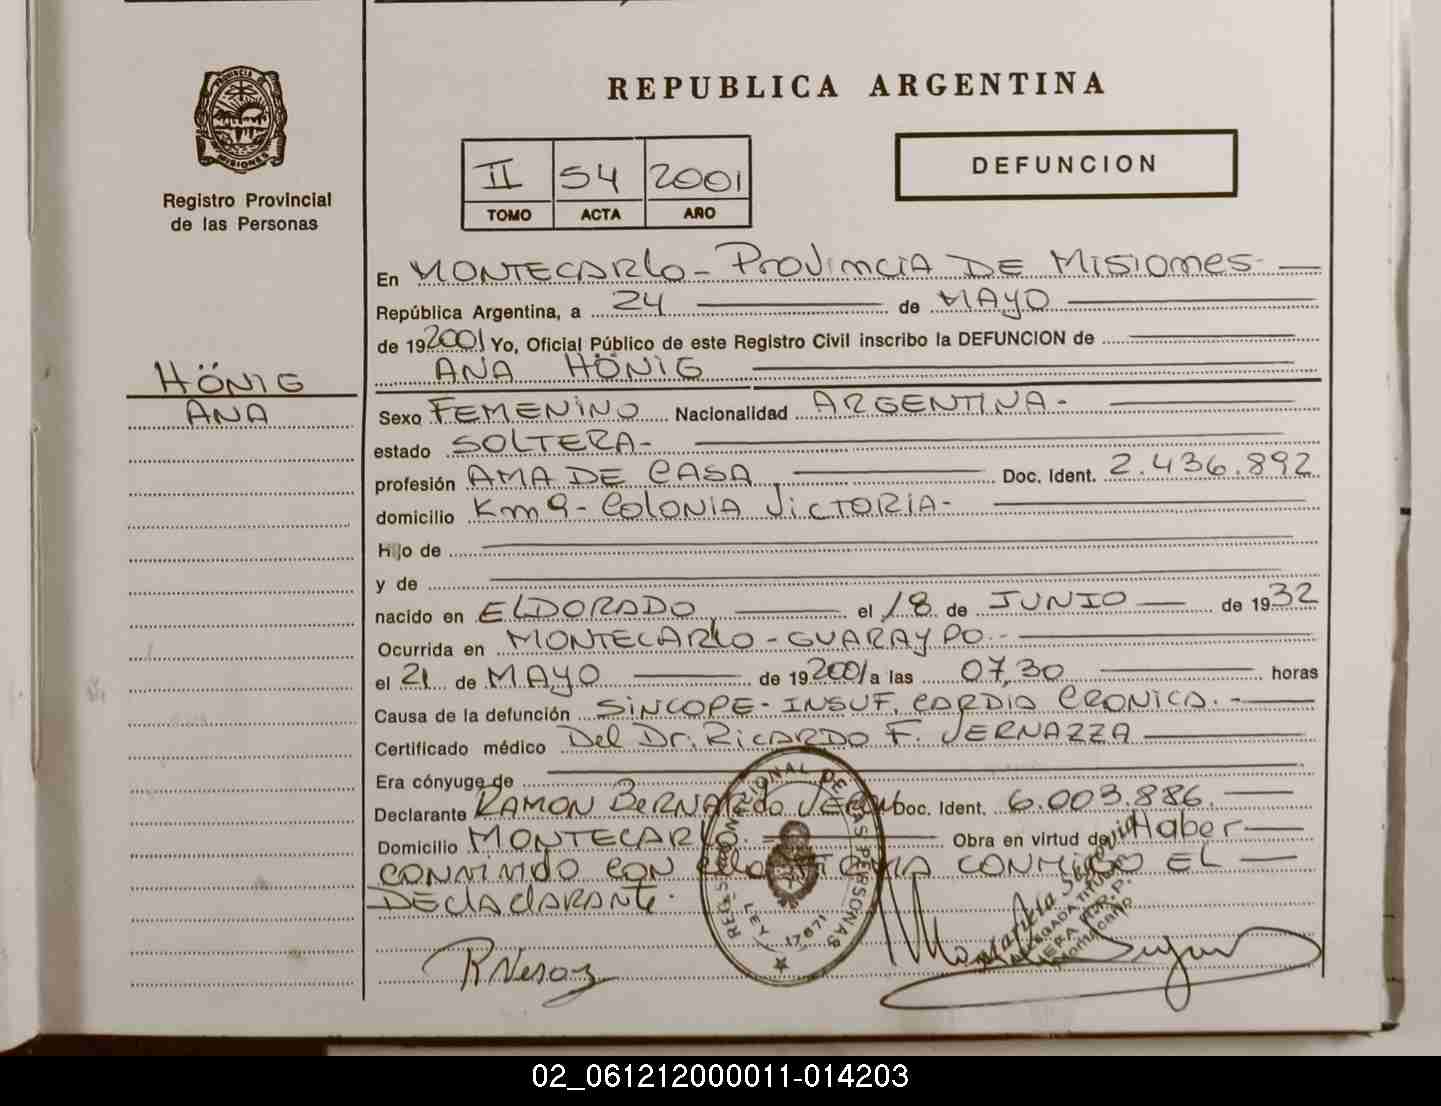 PROVINCIA DE
MISIONES
Registro Provincial
de las Personas
HÖNIG
ANA
REPUBLICA ARGENTINA
II 54 2001
TOMO ACTA AÑO
DEFUNCION
En MONTECARLO - PROVINCIA DE MISIONES -
República Argentina, a 24 de MAYO
de 192001 Yo, Oficial Público de este Registro Civil inscribo la DEFUNCION de
ANA HÖNIG
Sexo FEMENINO Nacionalidad ARGENTINA -
estado SOLTERA -
profesión AMA DE CASA Doc. Ident. 2.436.892
domicilio Km 9 - COLONIA VICTORIA -
Hijo de
y de
nacido en ELDORADO el 18 de JUNIO de 1932
Ocurrida en MONTECARLO - GUARAYPO -
el 21 de MAYO de 192001 a las 07,30 horas
Causa de la defunción SINCOPE - INSUF. CARDIA CRONICA. -
Certificado médico Del Dr. RICARDO F. VERNAZZA
Era cónyuge de
Declarante RAMON BERNARDO Doc. Ident. 6.003.886.
Domicilio MONTECARLO. Obra en virtud de Haber
CONVIVIDO CON ella FIRMA CONMIGO EL
DECLACLARANTE.
NACIONAL DE LAS PERSONAS
LEY 17671
02_061212000011-014203